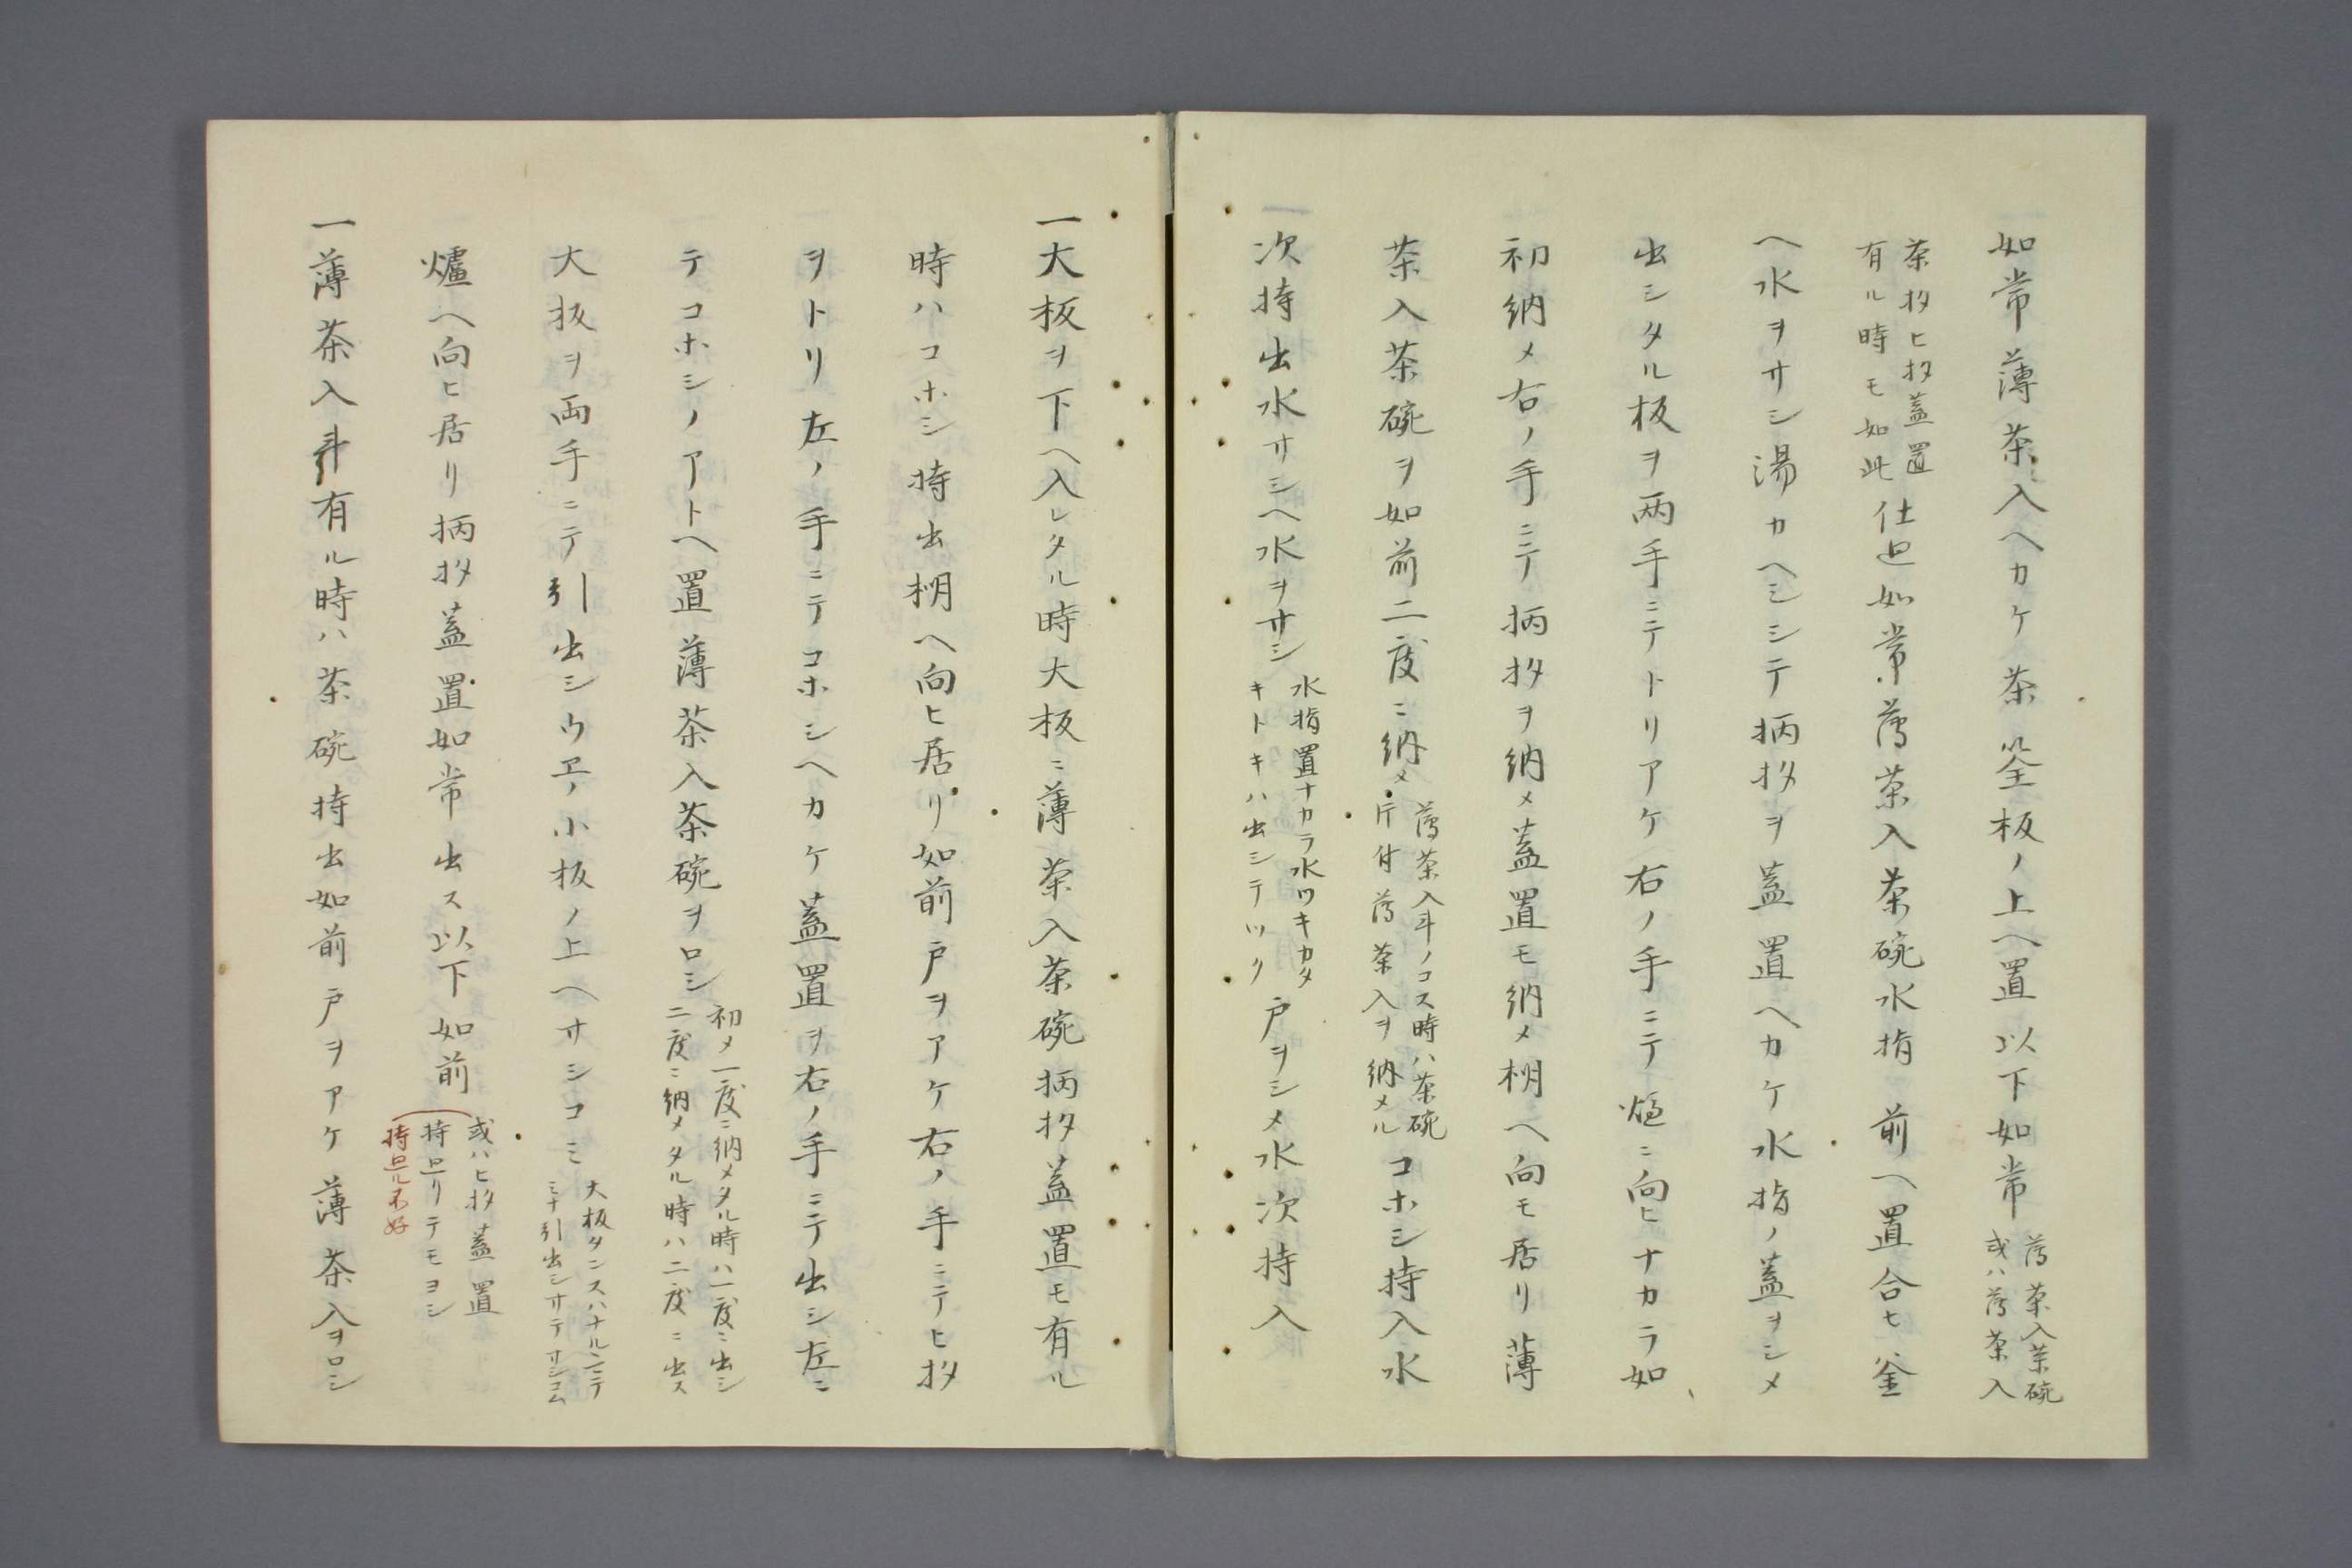 如常薄茶入ヘカケ茶筌板ノ上ヘ置以下如常
薄茶入茶碗
或ハ薄茶入
茶杓ヒ杓蓋置
有ル時モ如此
仕廻如常薄茶入茶碗水指前ヘ置合セ釜
ヘ水ヲサシ湯カヘシシテ柄杓ヲ蓋置ヘカケ水指ノ蓋ヲシメ
出シタル板ヲ両手ニテトリアケ右ノ手ニテ炉ニ向ヒナカラ如
初納メ右ノ手ニテ柄杓ヲ納メ蓋置モ納メ棚ヘ向モ居リ薄
茶入茶碗ヲ如前二度ニ納メ
薄茶入斗ノコス時ハ茶碗
片付薄茶入ヲ納メル
コホシ持入水
次持出水サシヘ水ヲサシ
水指置ナカラ水ツキカタ
キトキハ出シテツク
戸ヲシメ水次持入
一大板ヲ下ヘ入レタル時大板ニ薄茶入茶碗柄杓蓋置モ有ル
時ハコホシ持出棚ヘ向ヒ居リ如前戸ヲアケ右ノ手ニテヒ杓
ヲトリ左ノ手ニテコホシヘカケ蓋置ヲ右ノ手ニテ出シ左ニ
テコホシノアトヘ置薄茶入茶碗ヲロシ
初メ一度ニ納メタル時ハ一度ニ出シ
二度ニ納メタル時ハ二度ニ出ス
大板ヲ両手ニテ引出シウヱノ小板ノ上ヘサシコミ
大板タンスハナルヽニテ
ミナ引出シサテサシコム
爐ヘ向ヒ居リ柄杓蓋置如常出ス以下如前
或ハヒ杓蓋置
持回リテモヨシ
持回ル不好
一薄茶入斗有ル時ハ茶碗持出如前戸ヲアケ薄茶入ヲロシ